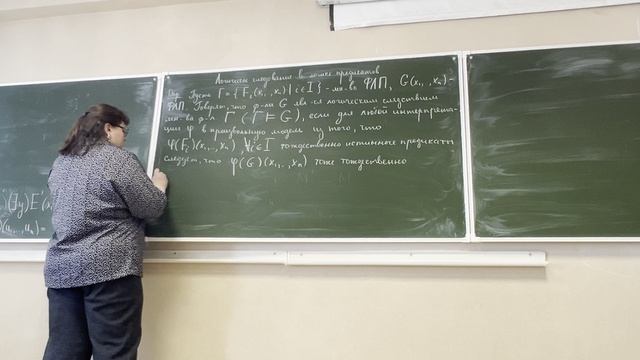 (∃y)E(
Логическое следование в логике предикатов
Опр. Пусть Γ = {Fᵢ(x₁,..,xₙ) | i∈I} - мн-во ФЛП, G(x₁,..,xₙ)-
ФЛП. Говорят, что ф-ла G явл-ся логическим следствием
мн-ва ф-л Γ (Γ ⊨ G), если для любой интерпрета-
ции φ в произвольную модель из того, что
φ(Fᵢ)(x₁,..,xₙ), ∀i∈I тождественно истинные предикаты
следует, что φ(G)(x₁,..,xₙ) тоже тождественно